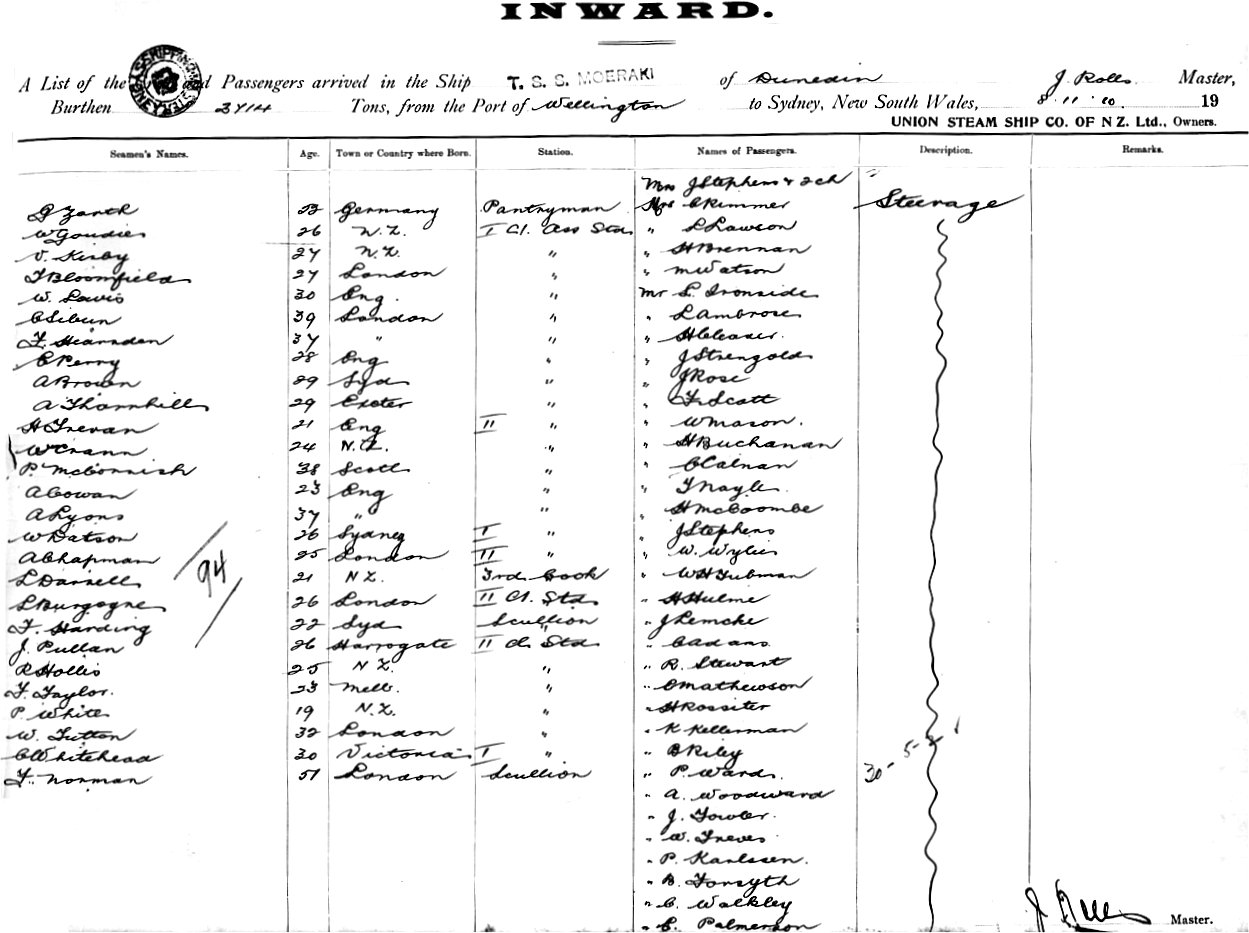 INWARD.
A List of the and Passengers arrived in the Ship T. S. S. MOERAKI of Dunedin J. Rolls Master,
Burthen 3714 Tons, from the Port of Wellington to Sydney, New South Wales, 8. 11. 10. 19
UNION STEAM SHIP CO. OF N Z. Ltd., Owners.
Seamen's Names. Age. Town or Country where Born. Station. Names of Passengers. Description. Remarks.
Mrs J Stephens & 2 ch
G Zarth 22 Germany Pantryman Mrs C Rimmer Steerage
W Goudie 26 N. Z. I Cl. Ass Std " L Lawson
V. Kirby 27 N. Z. " " H Brennan
T Bloomfield 27 London " " M Watson
W. Lewis 30 Eng. " Mr L. Ironside
C Sibun 39 London " " L Ambrose
F. Hearnden 37 " " " H Cleaver.
C Perry 28 Eng " " J Strengold
A Brown 29 Syd " " J Rose
A Thornhill 29 Exeter " " F. Scott
H Trevan 21 Eng II " " W Mason.
W Crann 24 N. Z. " " H Buchanan
P. McCormish 38 Scott " " C Calnan
A Cowan 23 Eng " " T Nayle.
A Lyons 37 " " " H McCoombe
W Datson 26 Sydney I " " J Stephens
A Chapman 25 London II " " W. Wylie
L Darnell 21 N Z. 3rd Cook " W H Tubman
L Burgogne 26 London II Cl. Std " H Hulme
F. Harding 22 Syd Scullion " J Lemcke
J. Pullan 26 Harrogate II Cl. Std " C Adans
R Hollis 25 N Z. " " R. Stewart
F. Taylor. 23 Melb. " " C Mathewson
P. White 19 N. Z. " " H Rossiter
W. Tutton 32 London " " K Kellerman
C Whitehead 30 Victoria I " " B Riley
F. Norman 51 London Scullion " P. Ward.
94
30 - 5 -
" A. Woodward
" J. Fowler.
" W. Treves
" P. Karlssen.
" B. Forsyth
" C. Walkley
" C. Palmerson
J. Rolls Master.